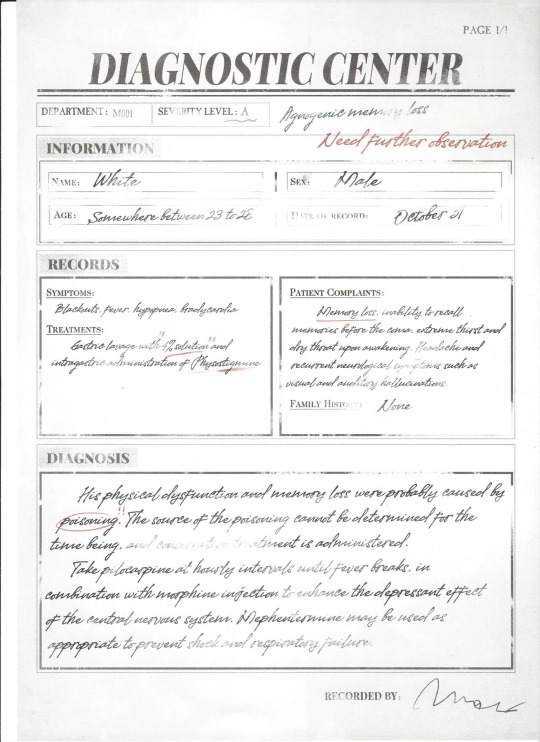 PAGE 1/1
DIAGNOSTIC CENTER
DEPARTMENT: M001 SEVERITY LEVEL: A Agnogenic memory loss
INFORMATION Need further observation
NAME: White SEX: Male
AGE: Somewhere between 23 to 28 DATE OF RECORD: October 31
RECORDS
SYMPTOMS:
Blackouts, fever, hypopnea, bradycardia
TREATMENTS:
Gastric lavage with "4% solution" and
intragastric administration of Physostigmine
PATIENT COMPLAINTS:
Memory loss, inability to recall
memories before the coma, extreme thirst and
dry throat upon awakening. Headache and
recurrent neurological symptoms such as
visual and auditory hallucinations.
FAMILY HISTORY: None
DIAGNOSIS
His physical dysfunction and memory loss were probably caused by
poisoning!! The source of the poisoning cannot be determined for the
time being, and conservative treatment is administered.
Take pilocarpine at hourly intervals until fever breaks, in
combination with morphine injection to enhance the depressant effect
of the central nervous system. Mephentermine may be used as
appropriate to prevent shock and respiratory failure.
RECORDED BY: